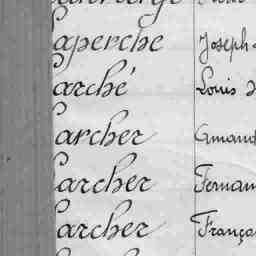 Laperche Joseph
Larché Louis
Larcher Amand
Larcher Fernan
Larcher França